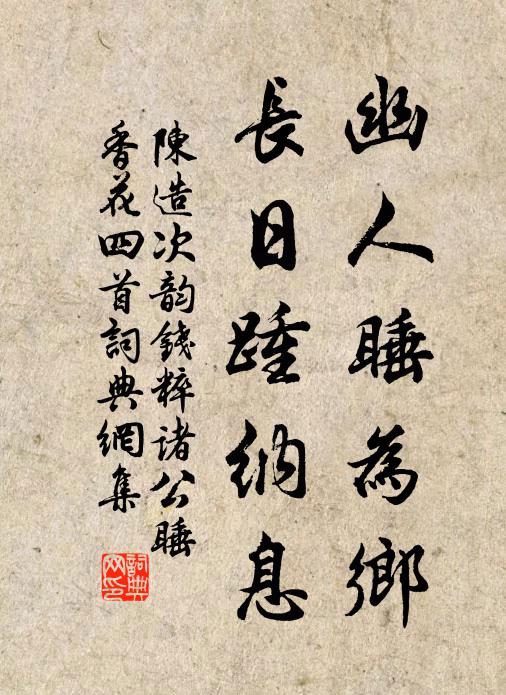 幽人睡為鄉
長日踵納息
陳造次韵錢粹諸公睡
香花四首詞典網集
詞典
网印